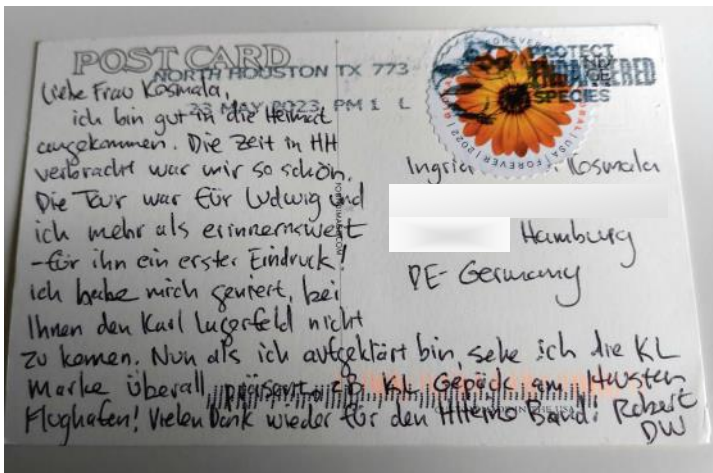 POST CARD
NORTH HOUSTON TX 773
23 MAY 2023 PM 1 L
PROTECT
ENDANGERED
SPECIES
Liebe Frau Kosmala,
ich bin gut in die Heimat
angekommen. Die Zeit in HH
verbracht war mir so schön.
Die Tour war für Ludwig und
ich mehr als erinnernswert
- für ihn ein erster Eindruck!
ich habe mich geniert, bei
Ihnen den Karl Lagerfeld nicht
zu kennen. Nun als ich aufgeklärt bin, sehe ich die KL
Marke überall präsent, z.B. KL Gepäck am Houston
Flughafen! Vielen Dank wieder für den Band! Robert
DW
Kosmala
Hamburg
DE-Germany
FOREVER / USA / FOREVER / 2022